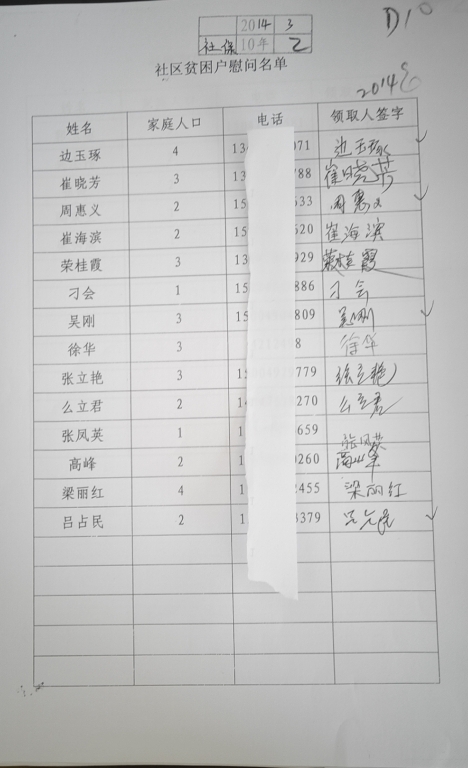 2014 3
D10
社保 10年 2
社区贫困户慰问名单
2014
姓名 家庭人口 电话 领取人签字
边玉琢 4 13 071 边玉琢
崔晓芳 3 13 788 崔晓芳
周惠义 2 15 633 周惠义
崔海滨 2 15 620 崔海滨
荣桂霞 3 13 929 荣桂霞
刁会 1 15 886 刁会
吴刚 3 15 809 吴刚
徐华 3 8 徐华
张立艳 3 15 779 张立艳
么立君 2 1 270 么立君
张凤英 1 1 659 张凤英
高峰 2 1 0260 高峰
梁丽红 4 1 2455 梁丽红
吕占民 2 1 3379 吕占民